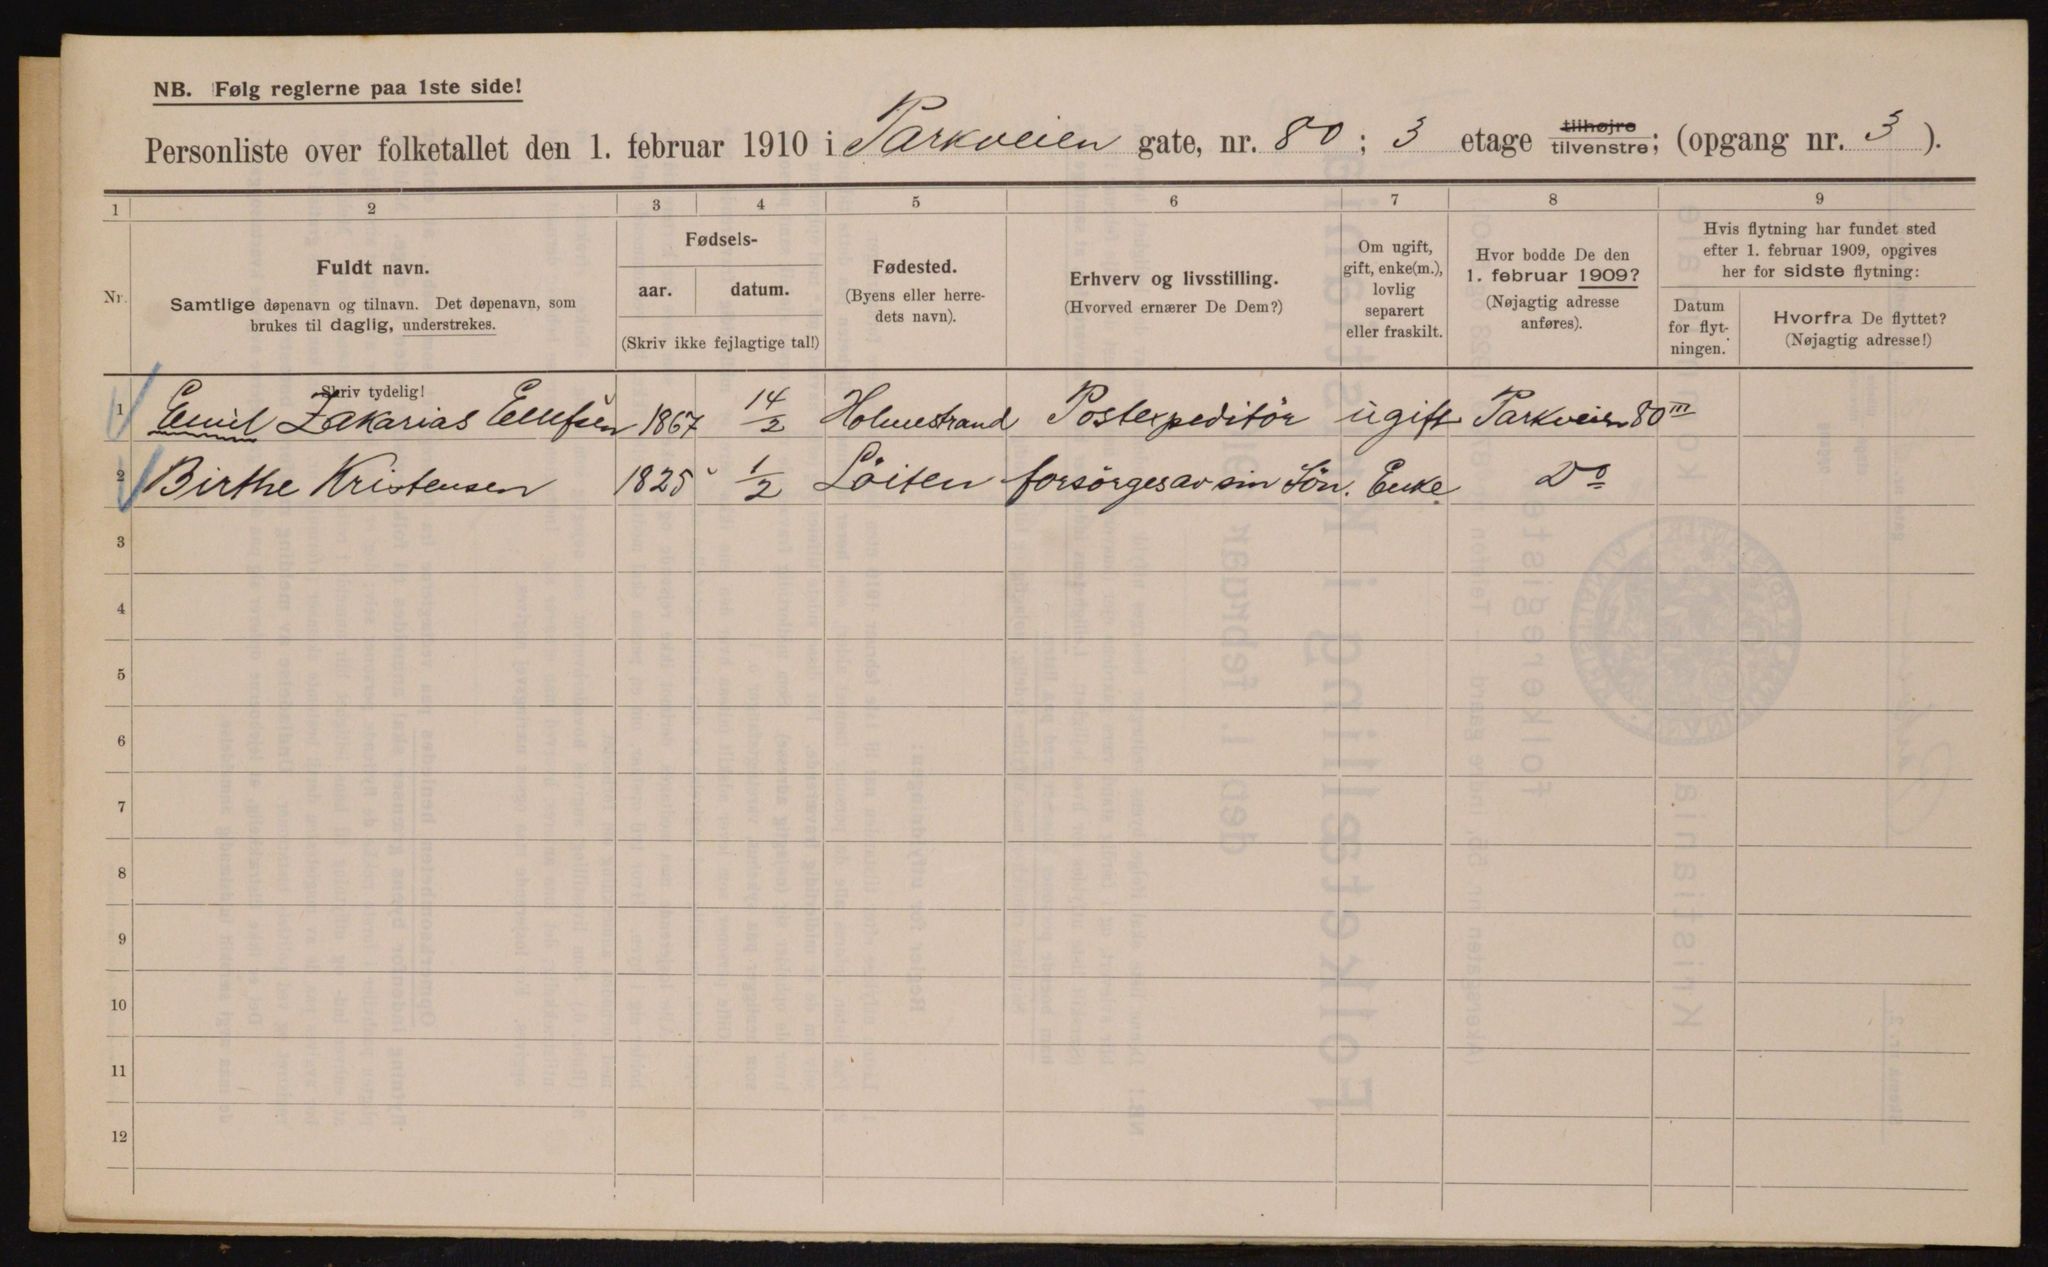 NB. Følg reglerne paa 1ste side!
Personliste over folketallet den 1. februar 1910 i Parkveien gate, nr. 80 ; 3 etage tilhøjre tilvenstre; (opgang nr. 3 ).
1 2 3 4 5 6 7 8 9
Nr.
Fuldt navn.
Samtlige døpenavn og tilnavn. Det døpenavn, som
brukes til daglig, understrekes.
Skriv tydelig!
Fødsels-
aar. datum.
(Skriv ikke fejlagtige tal!)
Fødested.
(Byens eller herre-
dets navn).
Erhverv og livsstilling.
(Hvorved ernærer De Dem?)
Om ugift,
gift, enke(m.),
lovlig
separert
eller fraskilt.
Hvor bodde De den
1. februar 1909?
(Nøjagtig adresse
anføres).
Hvis flytning har fundet sted
efter 1. februar 1909, opgives
her for sidste flytning:
Datum
for flyt-
ningen.
Hvorfra De flyttet?
(Nøjagtig adresse!)
1 Emil Zakarias Ellefsen 1867 14/2 Holmestrand Postexpeditör ugift Parkveien 80 III
2 Birthe Kristensen 1825 1/2 Löiten forsörges av sin Sön. Enke Do
3
4
5
6
7
8
9
10
11
12